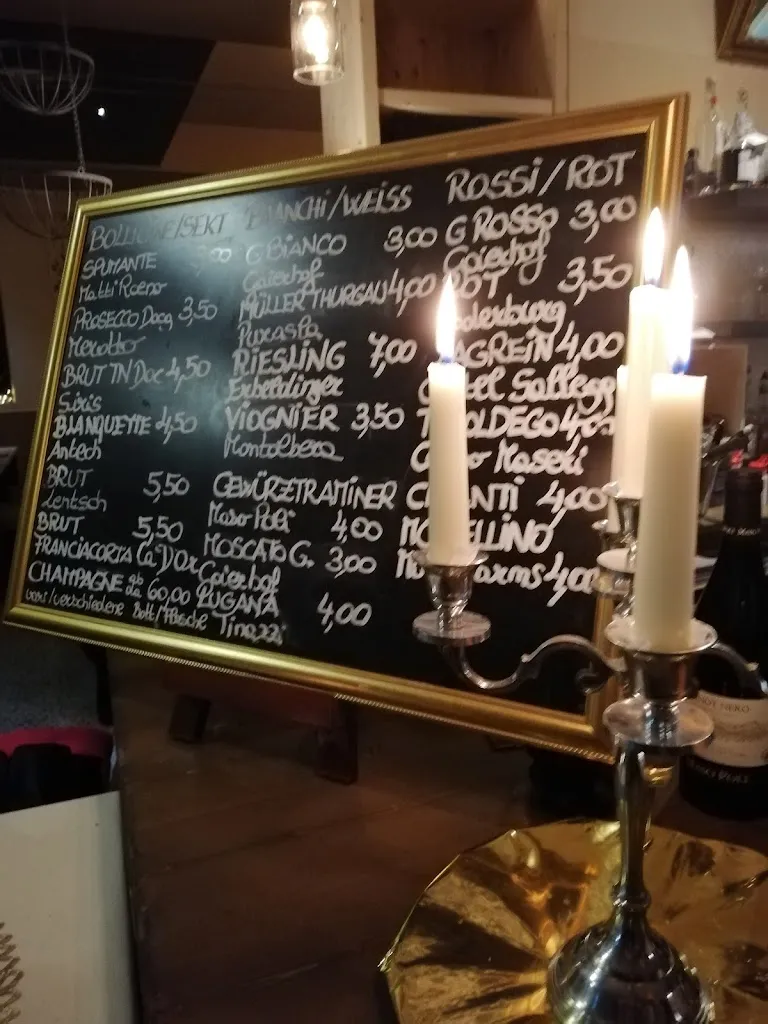 BOLLICINE/SEKT
SPUMANTE
Matti Roero
PROSECCO Docg 3,50
Merotto
BRUT TN Doc 4,50
Siris
BLANQUETTE 4,50
Antech
BRUT 5,50
Lentsch
BRUT 5,50
FRANCIACORTA Ca' D'Or
CHAMPAGNE ab da 60,00
vari/verschiedene Bott/Flasche
BIANCHI/WEISS
G BIANCO 3,00
Gaierhof
MÜLLER THURGAU 4,00
RIESLING 7,00
VIOGNIER 3,50
Montalbera
GEWÜRZTRAMINER
Maso Poli 4,00
MOSCATO G. 3,00
Gaierhof
LUGANA 4,00
Tinazzi
ROSSI/ROT
G ROSSO 3,00
Gaierhof
ROT 3,50
LAGREIN 4,00
TEROLDEGO 4,00
CHIANTI 4,00
4,00